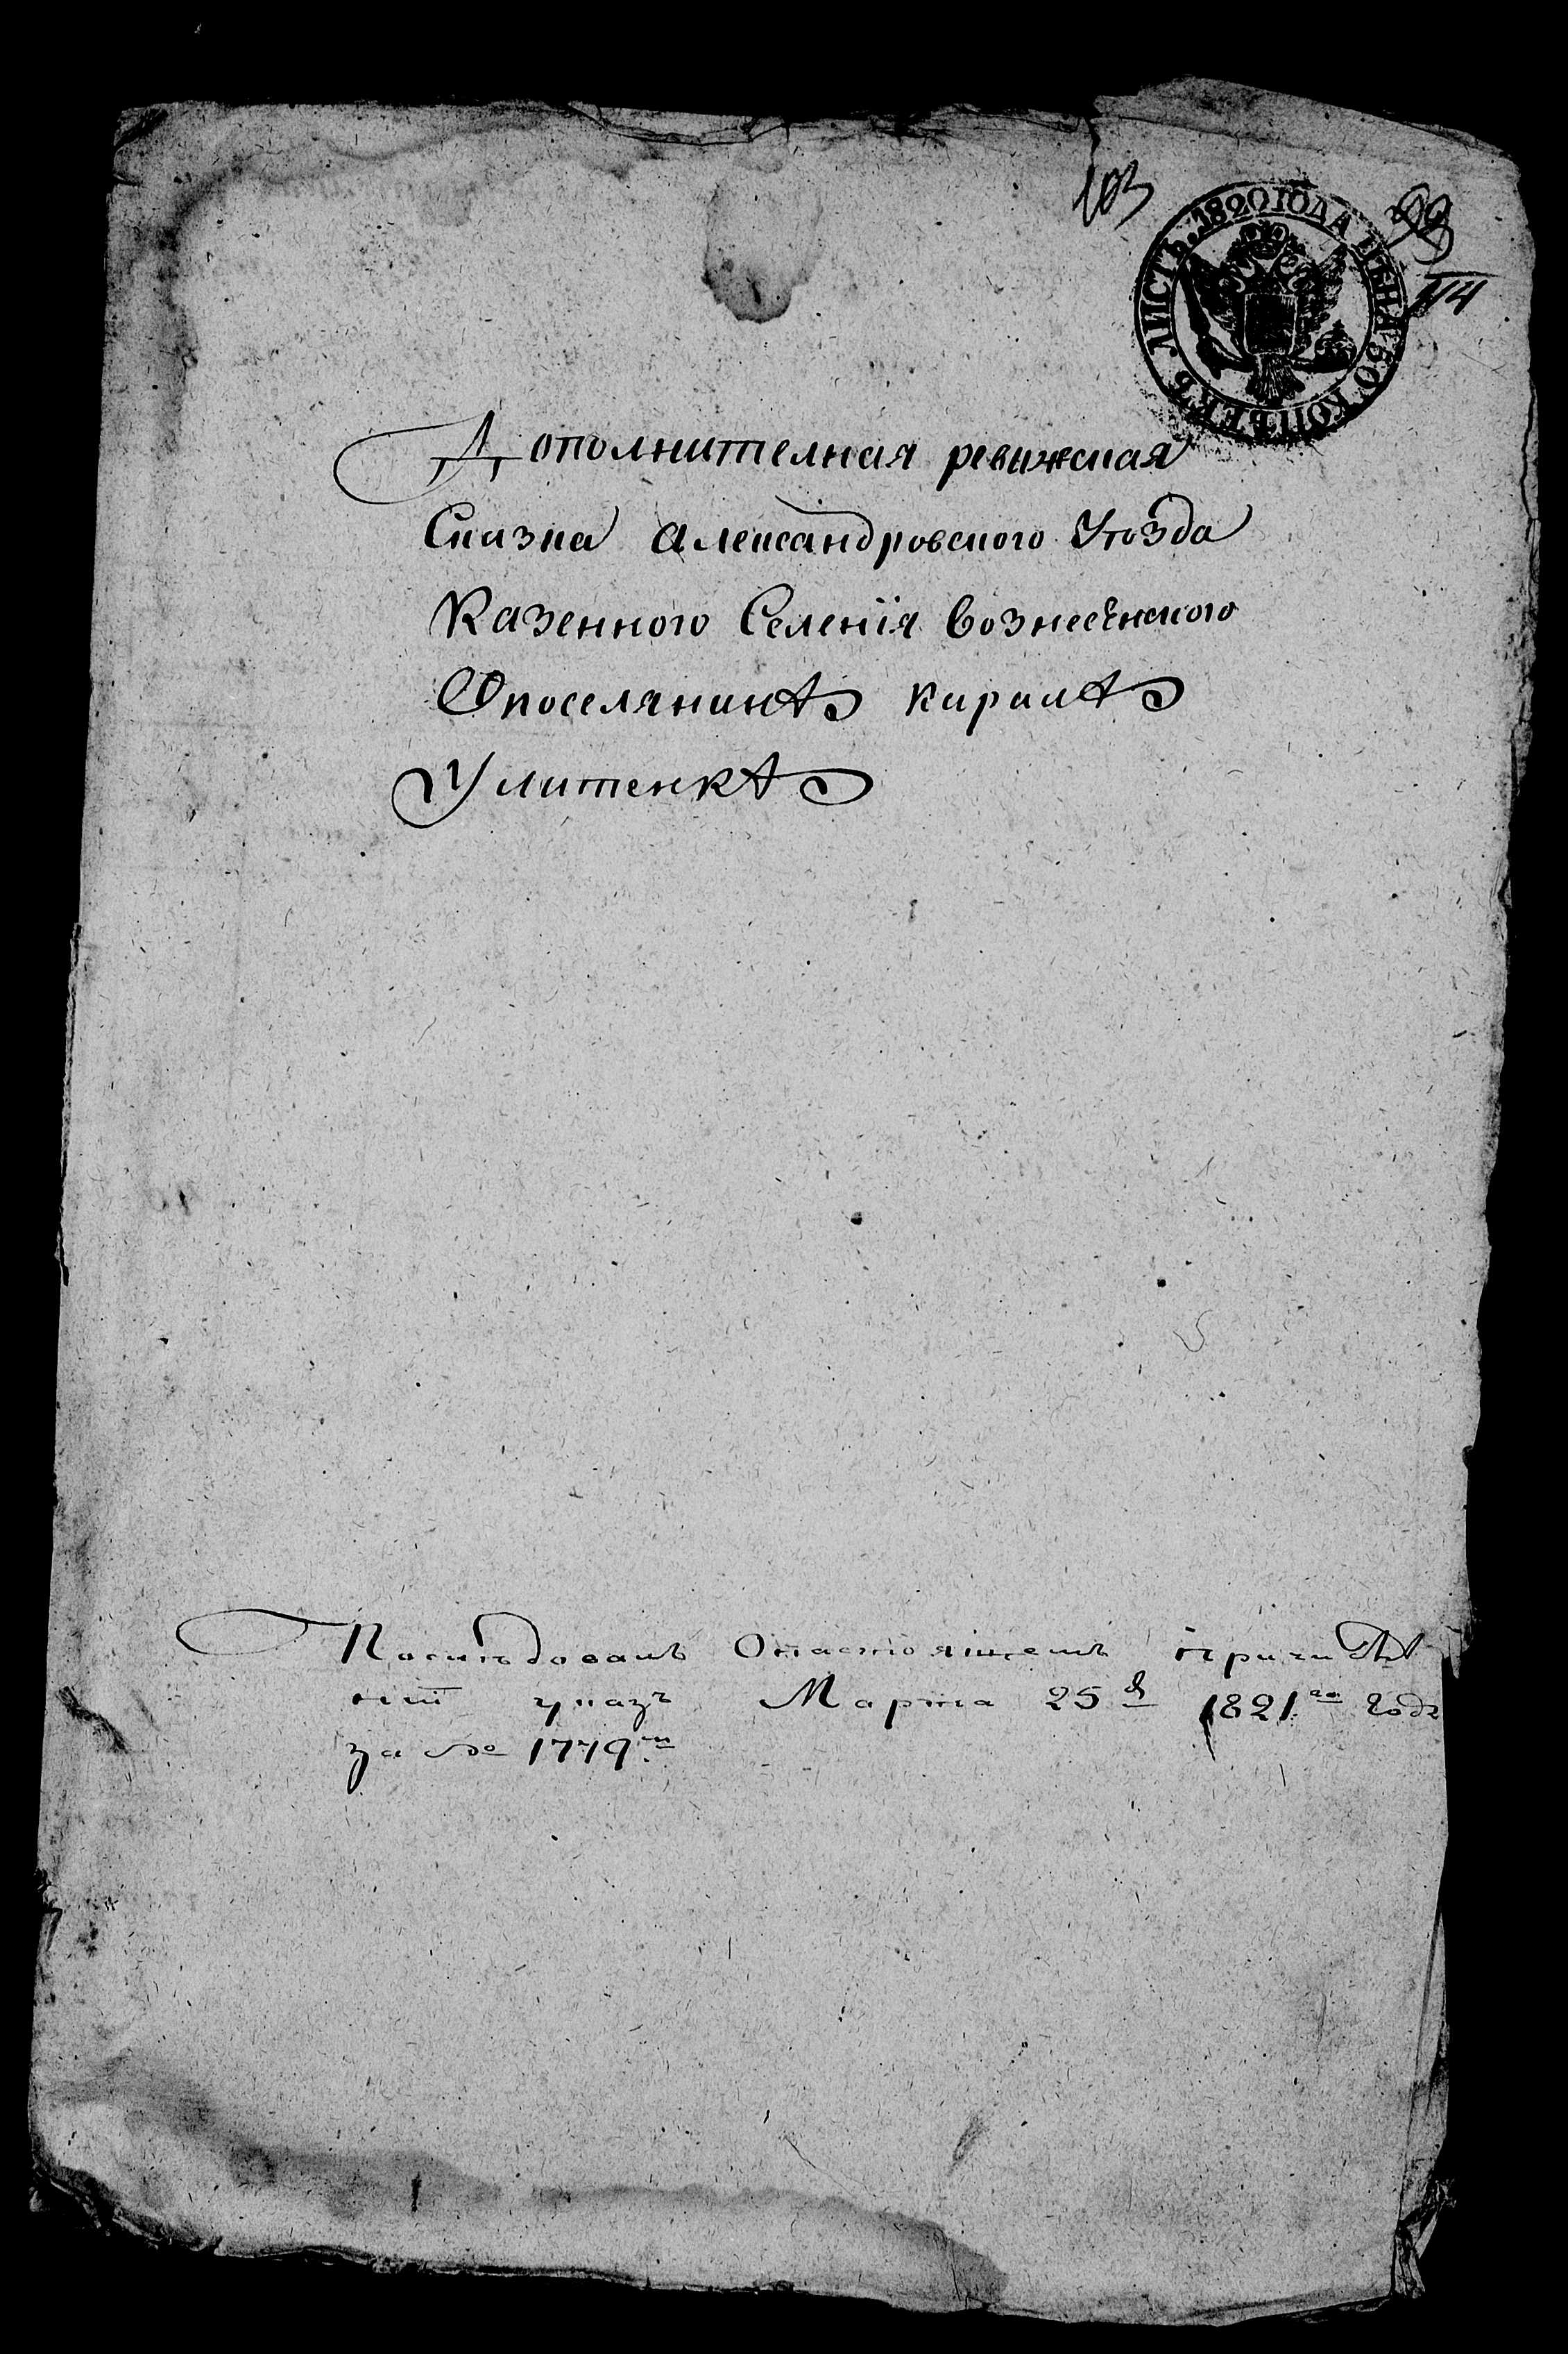 103
99
114
ЛИСТЪ. 1820 ГОДА ЦѢНА 50 КОПѢЕКЪ
Дополнителная ревижская
Сказка александровского Уѣзда
Казенного Селенія вознесенского
Опоселянинѣ кирилѣ
Улитенкѣ
Послѣдовалъ Онастоящемъ причи
указъ Марта 25 д 1821го года
за No 1779м